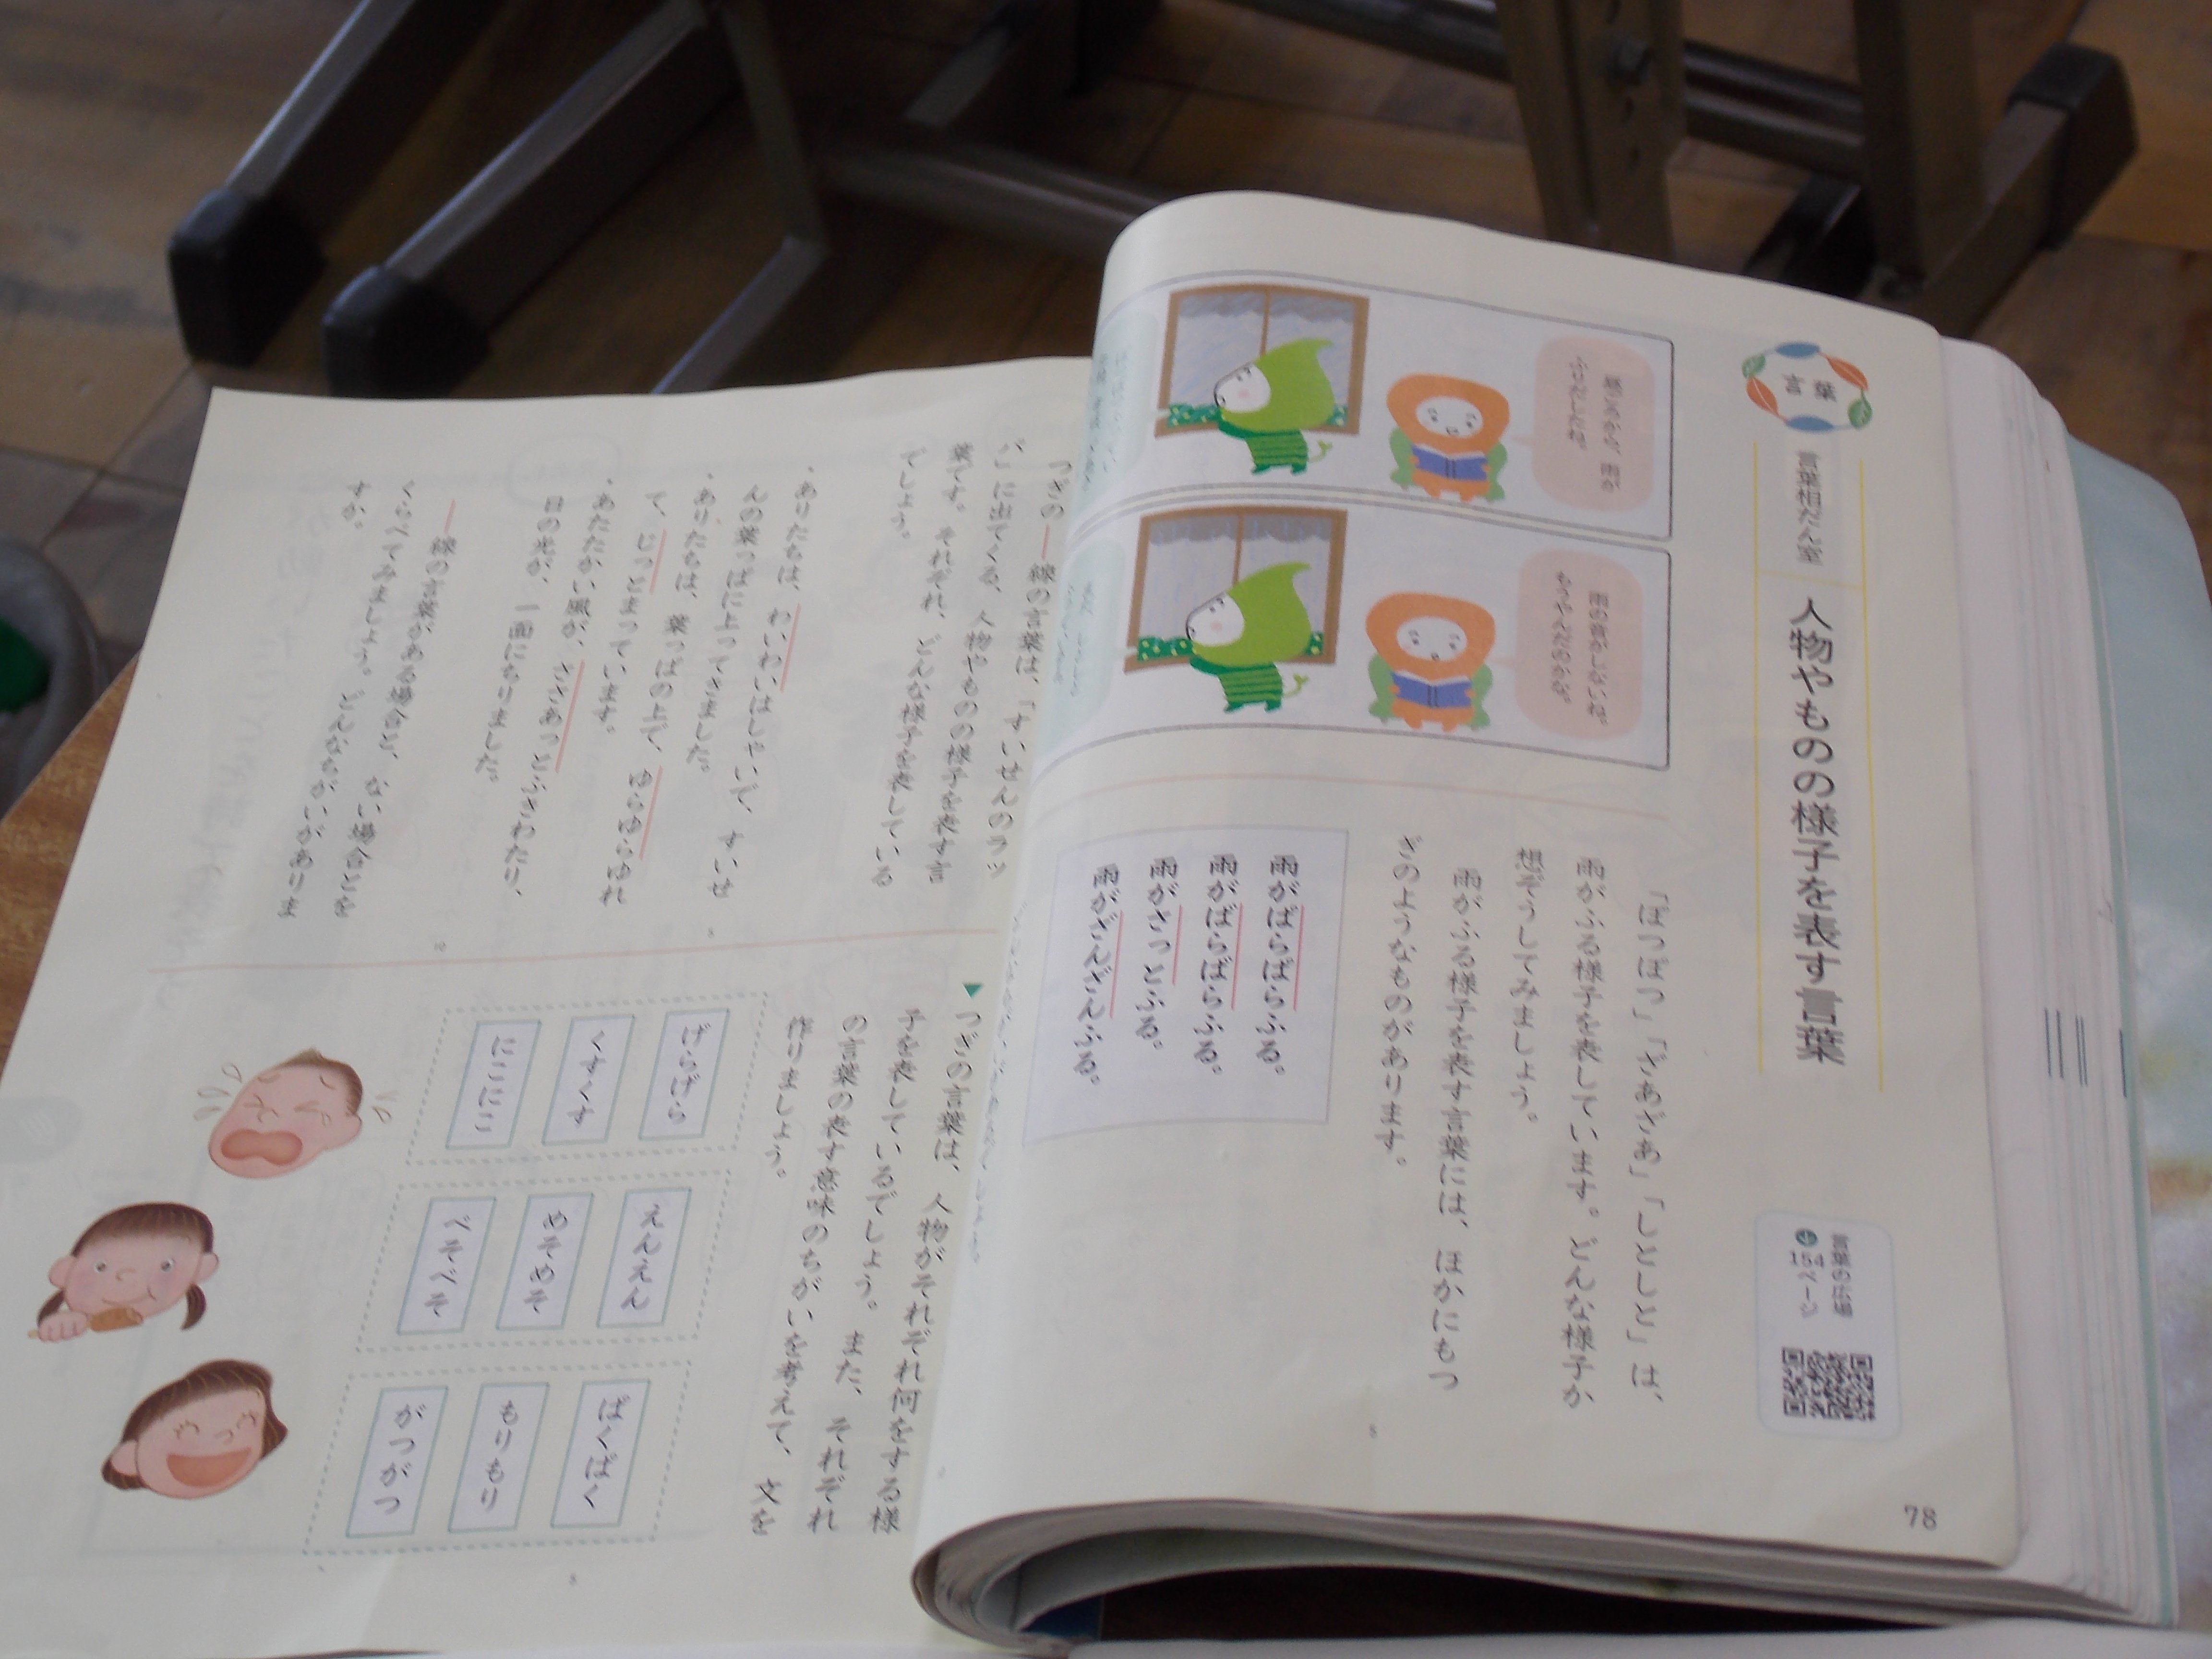 言葉
言葉相だん室
人物やものの様子を表す言葉
言葉の広場
154ページ
78
昼ごろから、雨が
ふりだしたね。
雨の音がしないね。
もうやんだのかな。
「ぽつぽつ」「ざあざあ」「しとしと」は、
雨がふる様子を表しています。どんな様子か
想ぞうしてみましょう。
雨がふる様子を表す言葉には、ほかにもつ
ぎのようなものがあります。
5
雨がぱらぱらふる。
雨がばらばらふる。
雨がざっとふる。
雨がざんざんふる。
つぎの―線の言葉は、「すいせんのラッ
パ」に出てくる、人物やものの様子を表す言
葉です。それぞれ、どんな様子を表している
でしょう。
・ありたちは、わいわいはしゃいで、すいせ
んの葉っぱに上ってきました。
・ありたちは、葉っぱの上で、ゆらゆらゆれ
て、じっとまっています。
・あたたかい風が、ささあっとふきわたり、
日の光が、一面にちりました。
―線の言葉がある場合と、ない場合とを
くらべてみましょう。どんなちがいがありま
すか。
5
10
つぎの言葉は、人物がそれぞれ何をする様
子を表しているでしょう。また、それぞれ
の言葉の表す意味のちがいを考えて、文を
作りましょう。
5
げらげら
くすくす
にこにこ
えんえん
めそめそ
べそべそ
ぱくぱく
もりもり
がつがつ